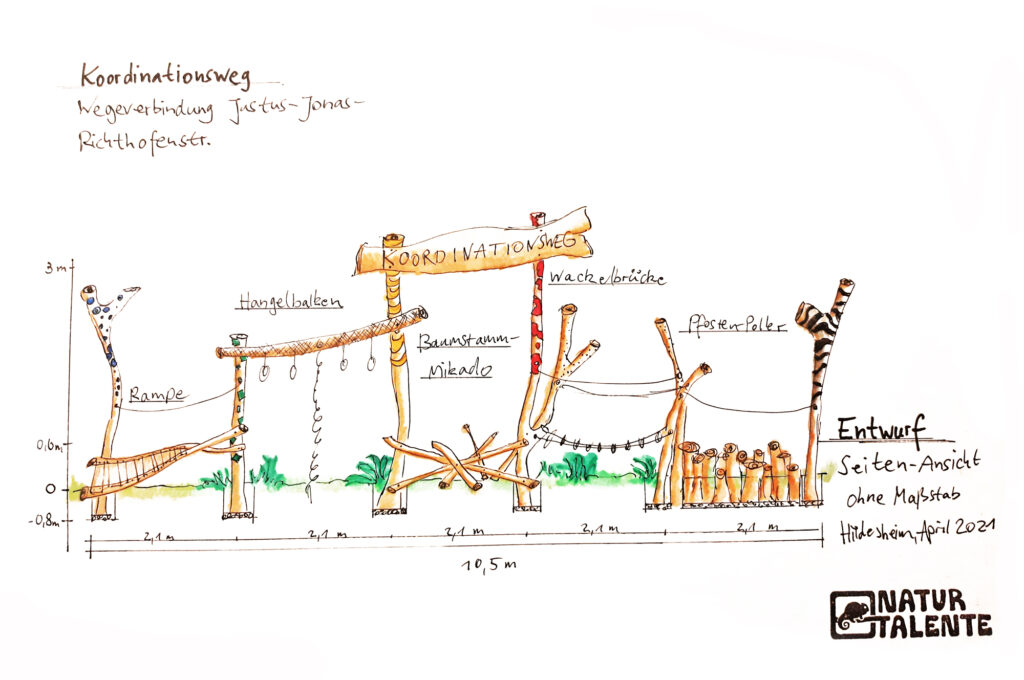 Koordinationsweg
Wegeverbindung Justus-Jonas-
Richthofenstr.
KOORDINATIONSWEG
3m
Hangelbalken
Wackelbrücke
Baumstamm-
Mikado
Pfosten-Poller
Rampe
0,6m
0
-0,8m
Entwurf
Seiten-Ansicht
ohne Maßstab
Hildesheim, April 2021
2,1 m
2,1 m
2,1 m
2,1 m
2,1 m
10,5 m
NATUR
TALENTE